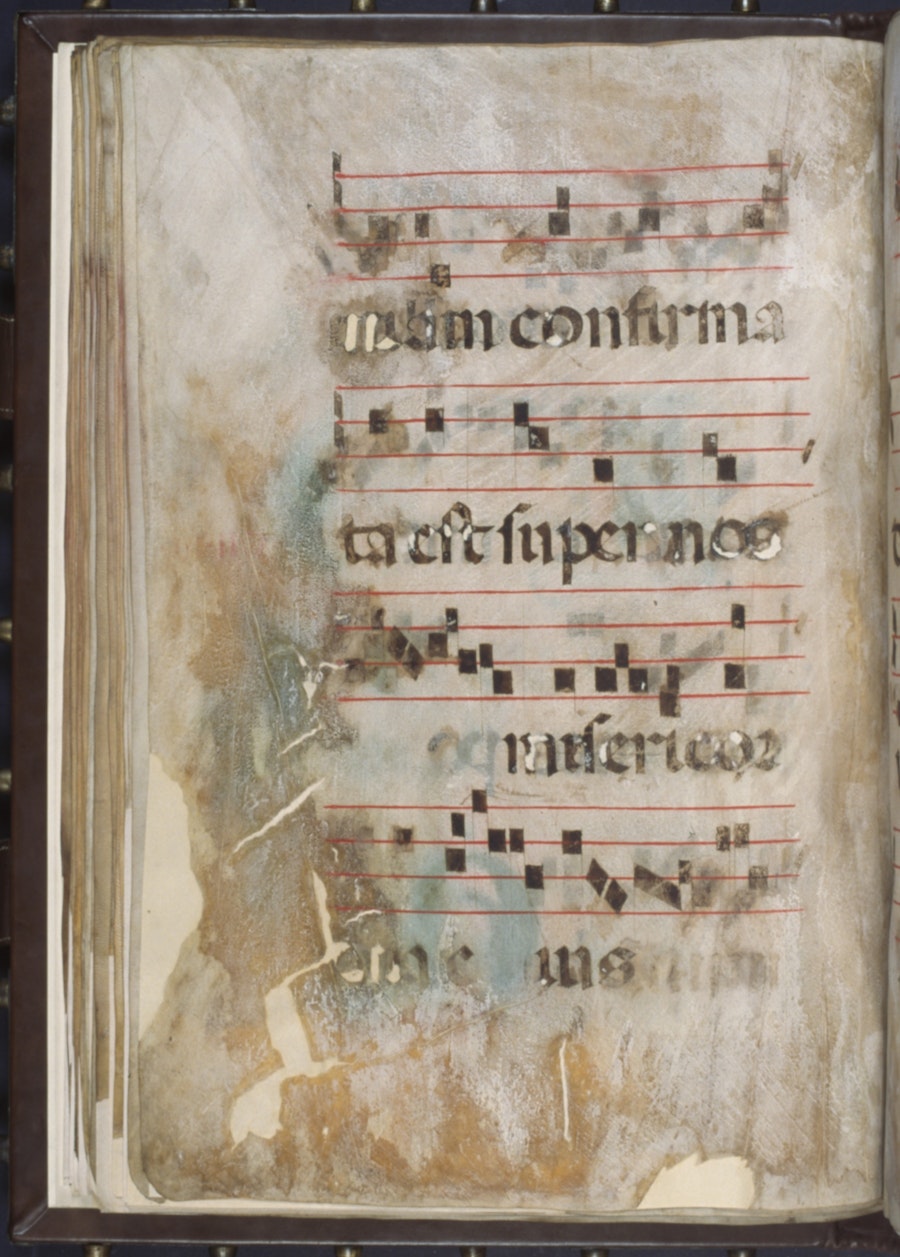 confirma
ta est super nos
misericor
dia e ius